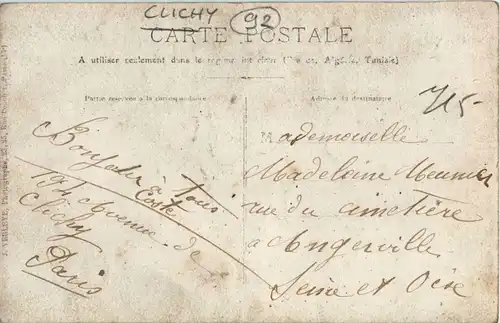 CLICHY 92
CARTE POSTALE
A utiliser seulement dans le régime intérieur (France, Algérie, Tunisie)
Partie réservée à la correspondance
Adresse du destinataire
Bonjour à Tous
194 Avenue de
Clichy
Paris
Mademoiselle
Madeleine Meunier
rue du cimetière
à Angerville
Seine et Oise